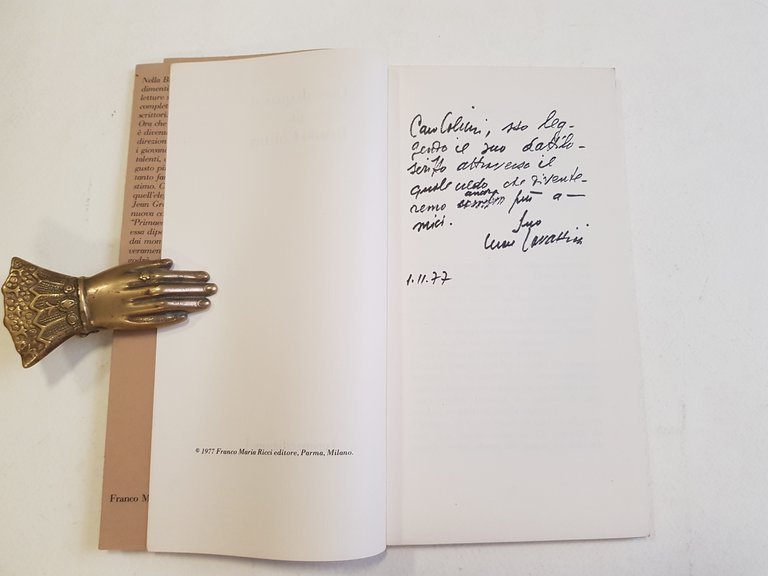 Nella B
dimenti
letture s
complet
scrittori
Ora che
è divenu
direzion
i giovan
talenti,
gusto pi
tanto fa
stimo. C
quell'el
Jean Gr
nuova co
"Primae
essa dip
dai mon
veramen
godrà
Franco M
© 1977 Franco Maria Ricci editore, Parma, Milano.
Caro sto leg-
gendo il suo dattilo-
scritto attraverso il
quale credo che divente-
remo ancora più a-
mici. Suo
Cesare Zavattini
1.11.77